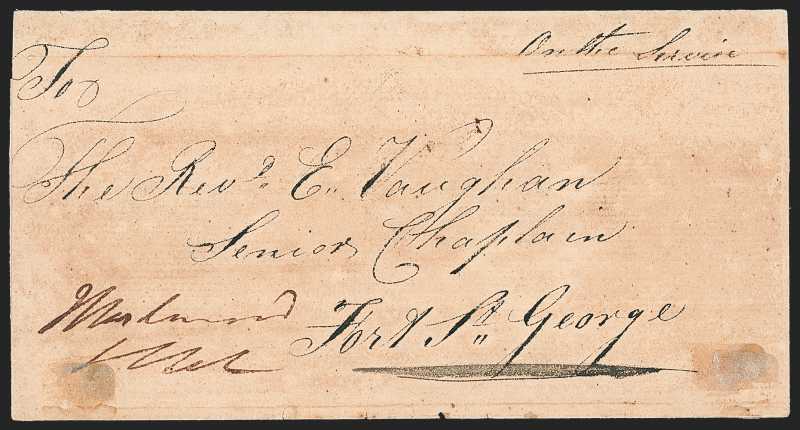 On the Service
To
The Revd. E. Vaughan
Senior Chaplain
Fort St. George